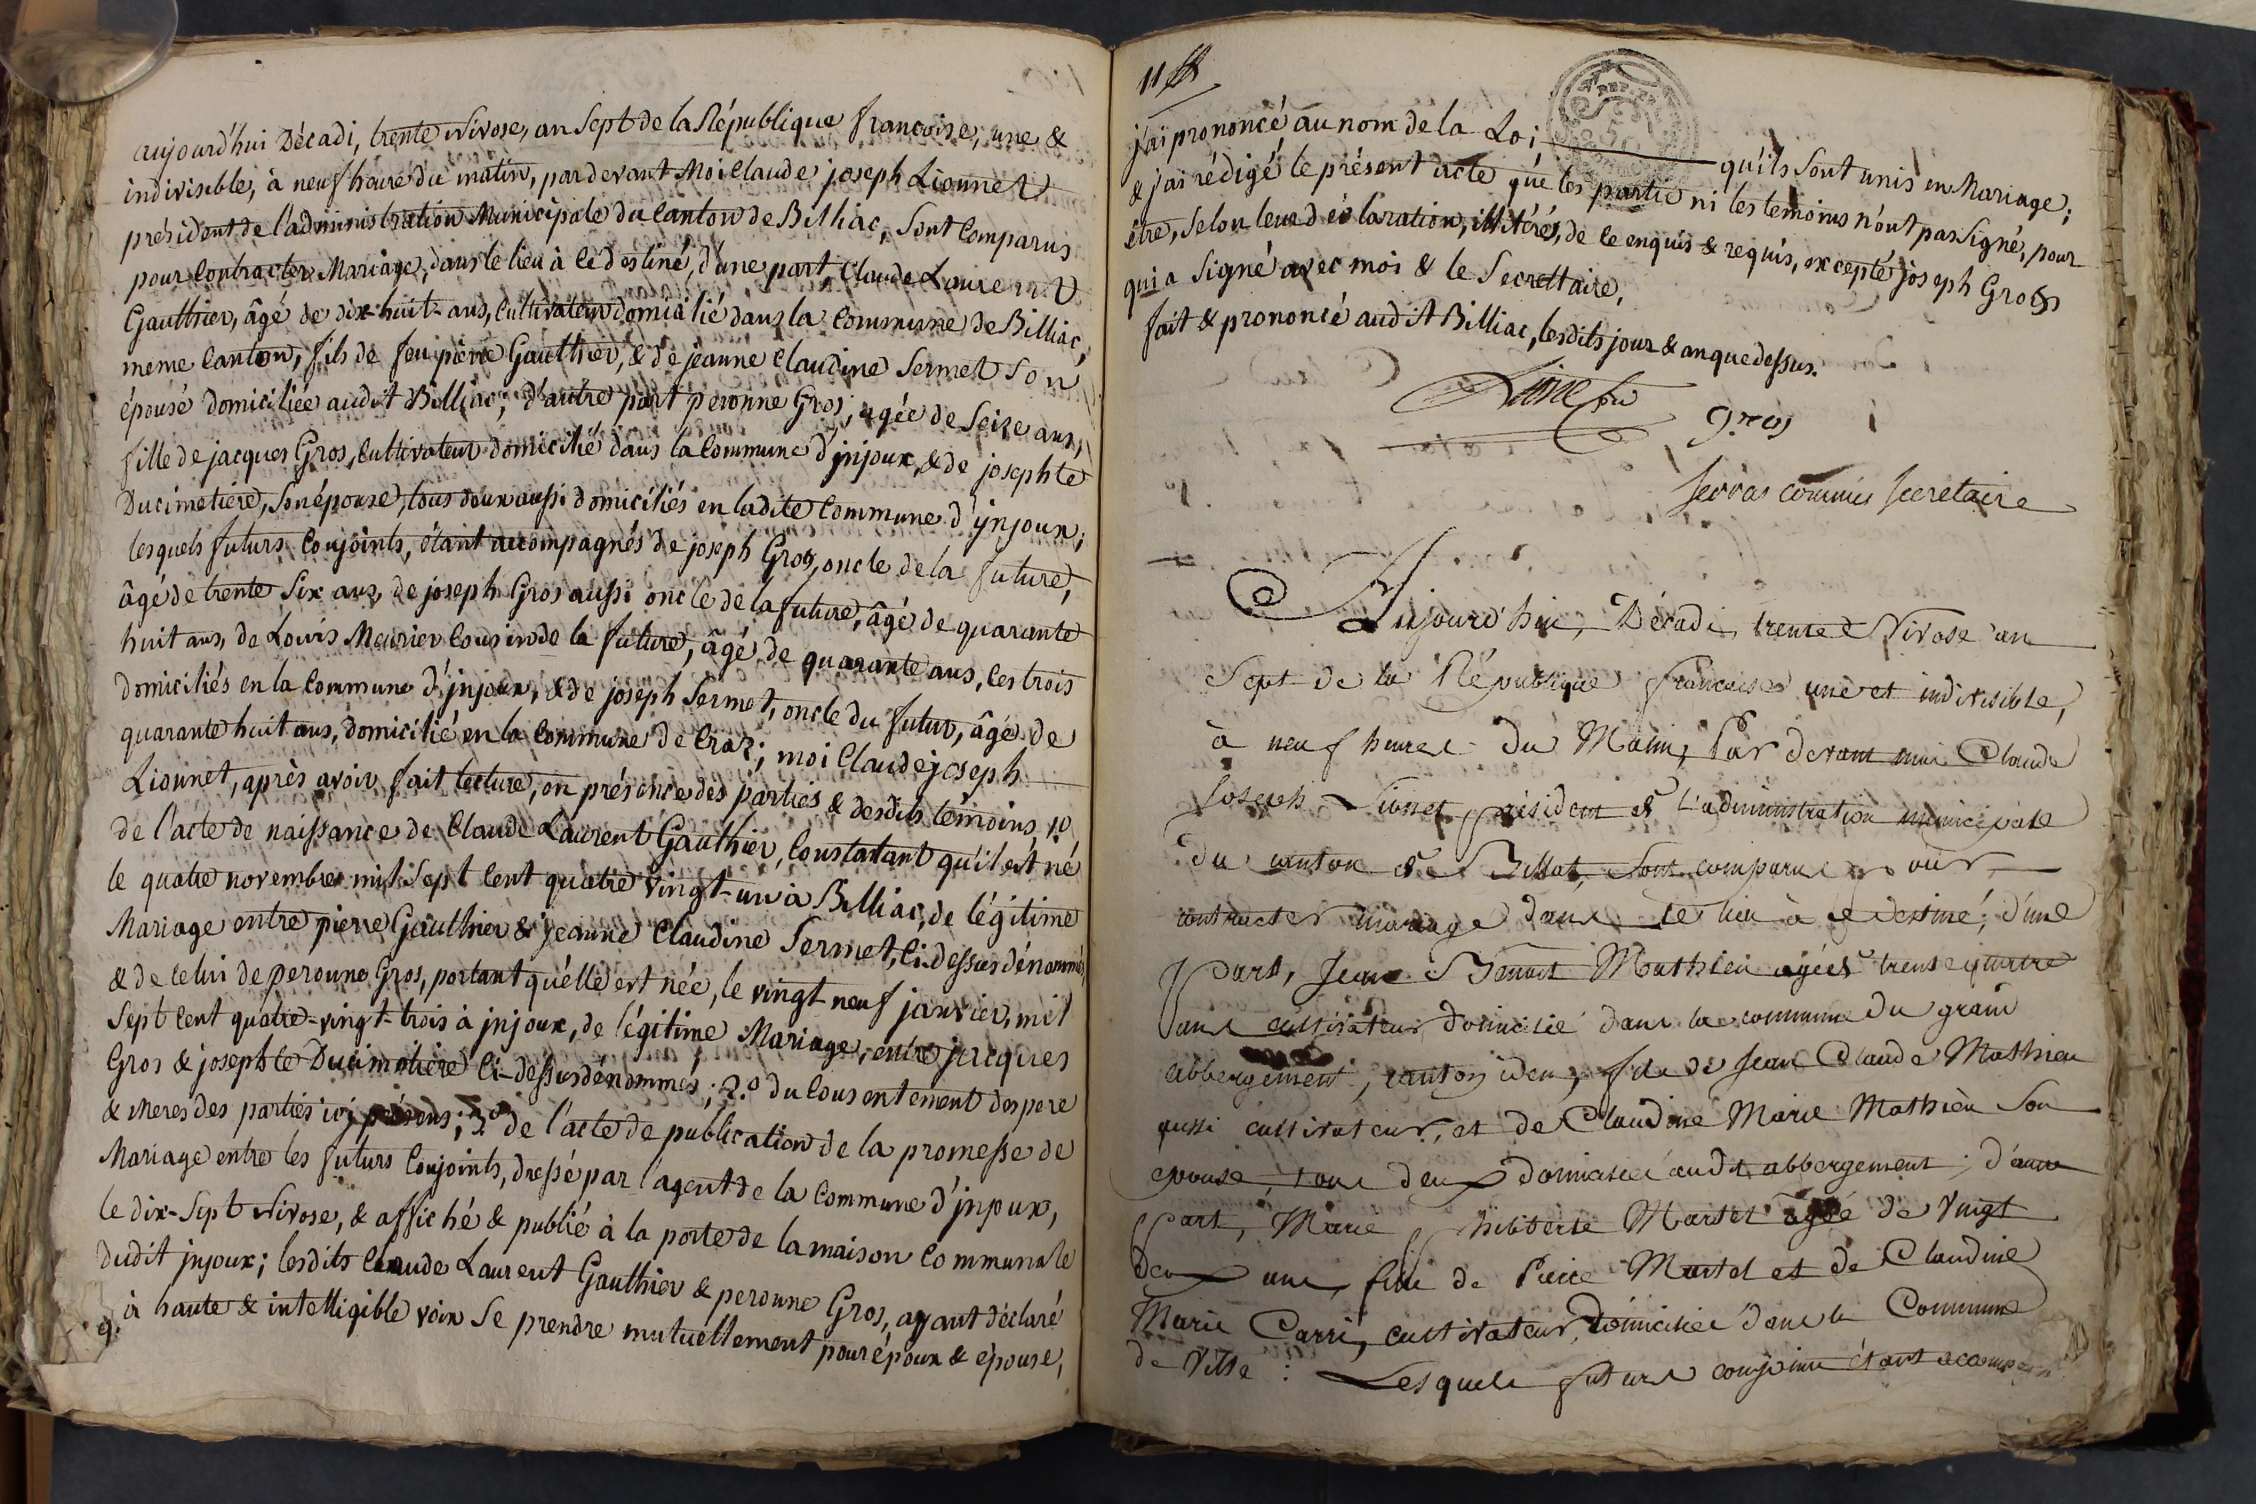 aujourd'hui Décadi, trente Nivose, an Sept de la République francoise, une &
indivisible, à neuf heure du matin, pardevant Moi Claude joseph Lionnet
président de l'administration Municipale du Canton de Billiac, Sont Comparus
pour Contracter Mariage, dans le lieu à ce destiné, d'une part, Claude Laurent
Gauthier, âgé de dix-huit-ans, Cultivateur domicilié dans la Commune de Billiac,
meme Canton, fils de feu pierre Gauthier, & de jeanne Claudine Sermet Son
épouse domiciliée audit Billiac; d'autre part peronne Gros, agée de Seize ans,
fille de jacques Gros, Cultivateur domicilié dans la Commune d'injoux, & de josephte
Ducimetiére, Son épouse, tous deux aussi domiciliés en ladite Commune d'ynjoux;
lesquels futurs Conjoints, étant accompagnés de joseph Gros, oncle de la future,
âgé de trente Six ans, de joseph Gros aussi oncle de la future, âgé de quarante
huit ans, de Louis Meunier Cousin de la future, âgé de quarante ans, les trois
domiciliés en la Commune d'injoux, & de joseph Sermet, oncle du futur, âgé de
quarante huit ans, domicilié en la Commune de Craz; moi Claude joseph
Lionnet, après avoir fait lecture, en présence des parties & desdits témoins 1.º
de l'acte de naissance de Claude Laurent Gauthier, Constatant qu'il est né
le quatre novembre mil Sept Cent quatre vingt-un à Billiac, de légitime
Mariage entre pierre Gauthier & jeanne Claudine Sermet, Ci-dessus dénommés,
& de celui de peronne Gros, portant qu'elle est née, le vingt-neuf janvier, mil
Sept Cent quatre-vingt-trois à jnjoux, de légitime Mariage, entre jacques
Gros & josephte Ducimetiére Ci-dessus dénommés; 2.º du Consentement des pere
& meres des parties ici présens; 3.º de l'acte de publication de la promesse de
Mariage entre les futurs Conjoints, dressé par l'agent de la Commune d'injoux,
le dix-Sept Nivose, & affiché & publié à la porte de la maison Communale
dudit jnjoux; lesdits Claude Laurent Gauthier & peronne Gros, ayant déclaré
à haute & intelligible voix Se prendre mutuellement pour époux & épouse,
11
j'ai prononcé au nom de la Loi qu'ils Sont unis en Mariage;
& j'ai rédigé le présent acte que les partie ni les temoins n'ont pas Signé, pour
etre, Selon leur déclaration, illitérés, de ce enquis & requis, excepté joseph Gros
qui a Signé avec moi & le Secrettaire.
fait & prononcé audit Billiac, lesdits jour & an que dessus.
Lionnet
gros
Serras commis Secretaire
Aujourd'hui, Décadi, trente Nivose an
Sept de la République françaises une et indivisible,
à neuf heures du Matin, Par devant moi Claude
Joseph Lionnet président de L'administration municipale
du canton de Billat, Sont comparus pour
contracter mariage dans le lieu à ce destiné; d'une
part, Jean Benoit Mathieu agé de trente quatre
ans cultivateur domicilié dans la commune du grand
abbergement, canton idem, fils de Jean Claude Mathieu
aussi cultivateur, et de Claudine Marie Mathieu Son
epouse, tous deux domiciliés audit abbergement; d'autre
part, Marie philiberte Martel agée de Vingt
deux ans, fille de Pierre Martel et de Claudine
Marie Carri, cultivateur, Domiciliée dans la Commune
de Ville: Lesquels futurs conjoins étant